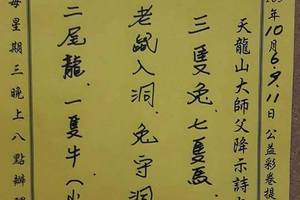 10月6.9.11日公益彩卷提
天龍山大師父降示詩
三隻兔.七隻馬
老鼠入洞.兔守洞
二尾龍.一隻牛(小
每星期三晚上八點辦